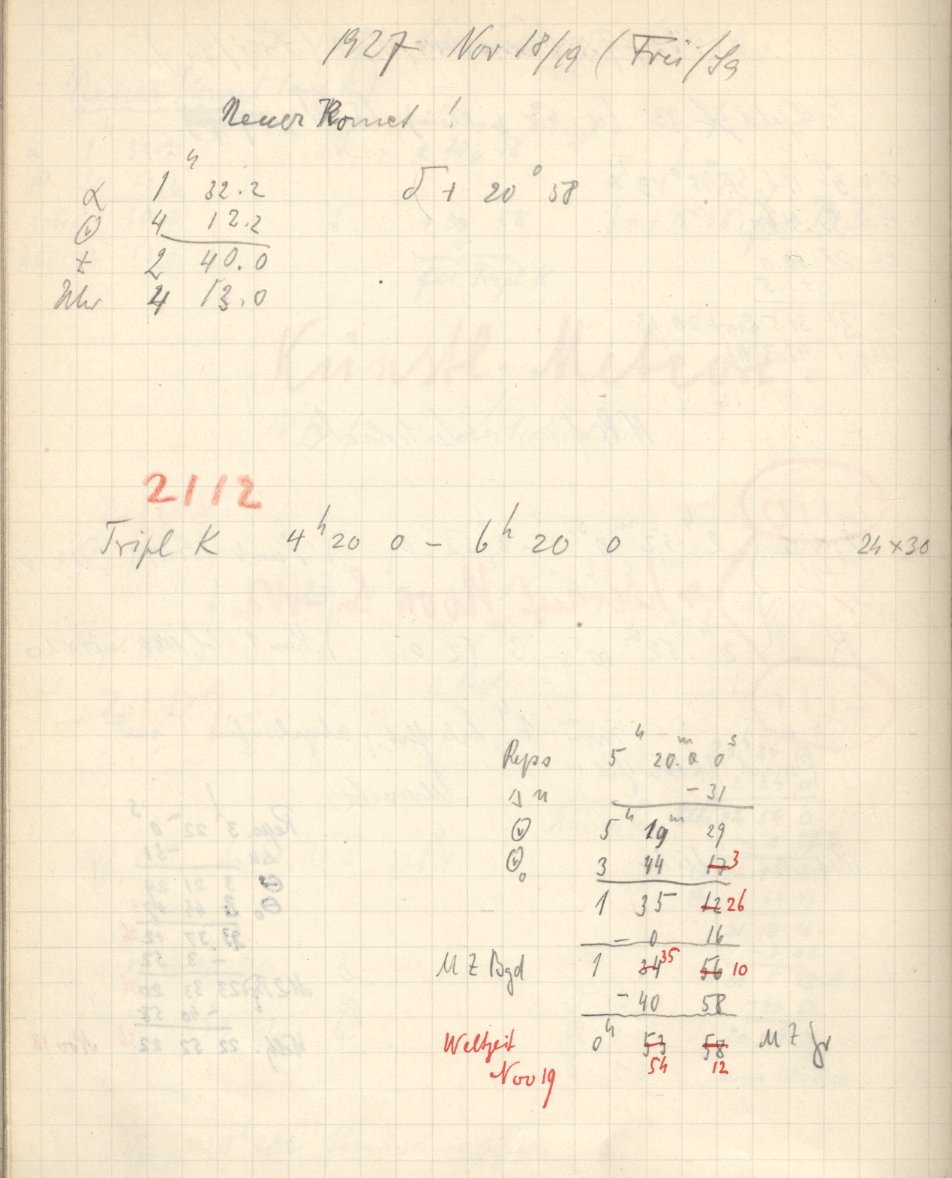 1927 Nov 18/19 (Frei/Sa
Neuer Komet!
α 1ʰ 32.2 δ + 20° 58
☉ 4 12.2
t 2 40.0
Uhr 4 13.0
2112
Tripl K 4ʰ 20 0 – 6ʰ 20 0 24×30
Reps 5ʰ 20ᵐ 0ˢ
Δu - 31
☉ 5ʰ 19ᵐ 29
☉₀ 3 44 17 3
1 35 12 26
– 0 16
M Z Bgd 1 34 35 56 10
– 40 58
Weltzeit 0ʰ 53 58 M Z Gr
Nov 19 54 12